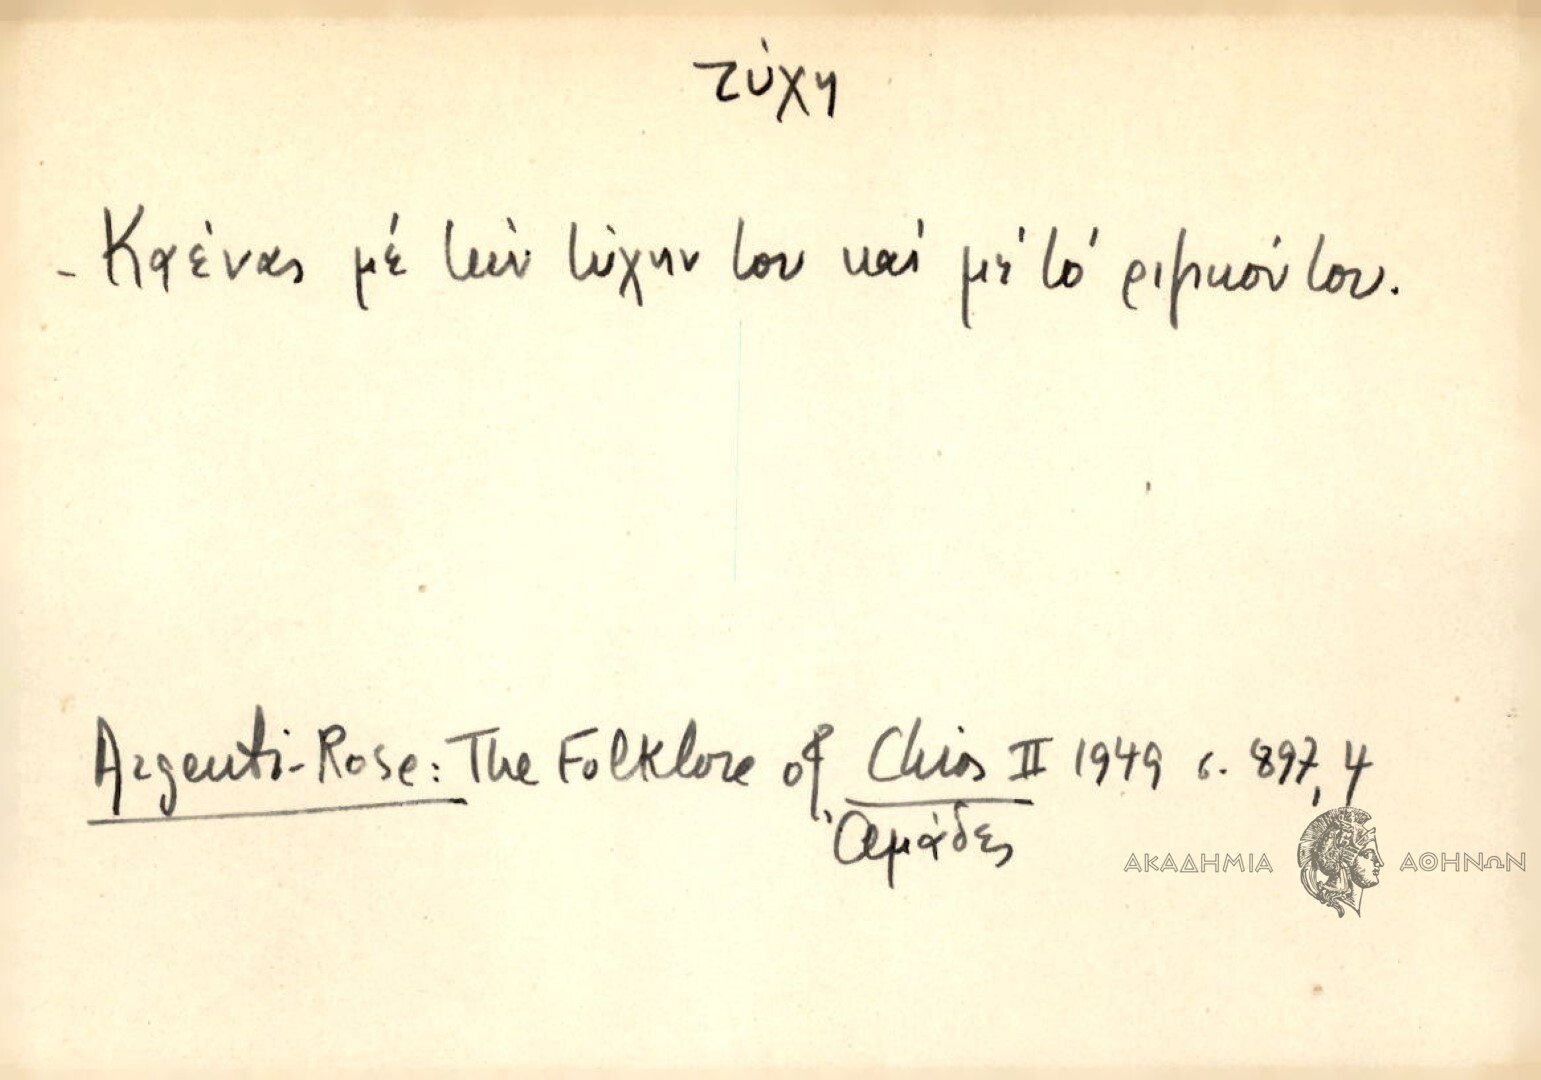 τύχη
- Καένας μέ τήν τύχην του καί μέ τό ριζικόν του.
Argenti-Rose: The Folklore of Chios II 1949 σ. 897,4
Ἀμάδες
ΑΚΑΔΗΜΙΑ ΑΘΗΝΩΝ